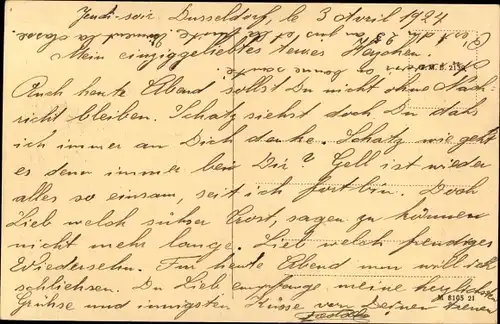 Jeudi-soir Dusseldorf, le 3 Avril 1924
Mein einziggeliebtes teures
Auch heute Abend sollst Du nicht ohne Nach-
richt bleiben. Schatz siehst doch Du dass
ich immer an Dich denke. Schatz wie geht
es denn immer bei Dir? Gell ist wieder
alles so einsam, seit ich fort bin. Doch
Lieb welch süsser Trost, sagen zu können
nicht mehr lange. Lieb welch freudiges
Wiedersehn. Für heute Abend nun will ich
schliessen. Du Lieb empfange meine herzlichsten
Grüsse und innigsten Küsse von Deiner
M 8105 21